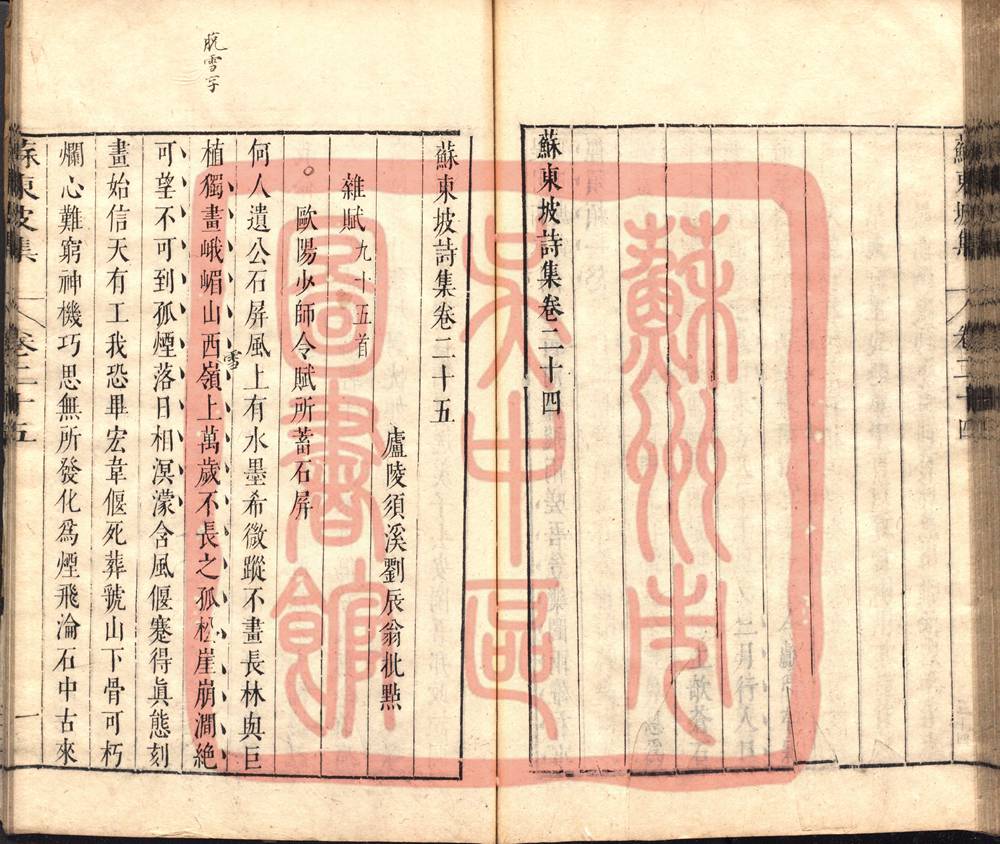 蘇東坡集
卷二十四
蘇東坡詩集卷二十四
蘇東坡詩集卷二十五
廬陵須溪劉辰翁批點
雜賦九十五首
歐陽少師令賦所蓄石屏
何人遺公石屏風上有水墨希微蹤不畫長林與巨
植獨畫峨嵋山西嶺上萬歲不長之孤松崖崩澗絶
雪
可望不可到孤煙落日相溟濛含風偃蹇得眞態刻
畫始信天有工我恐畢宏韋偃死葬虢山下骨可朽
爛心難窮神機巧思無所發化爲煙飛淪石中古來
蘇東坡集
卷二十五
一
雪字
蘇州市吳中區圖書館